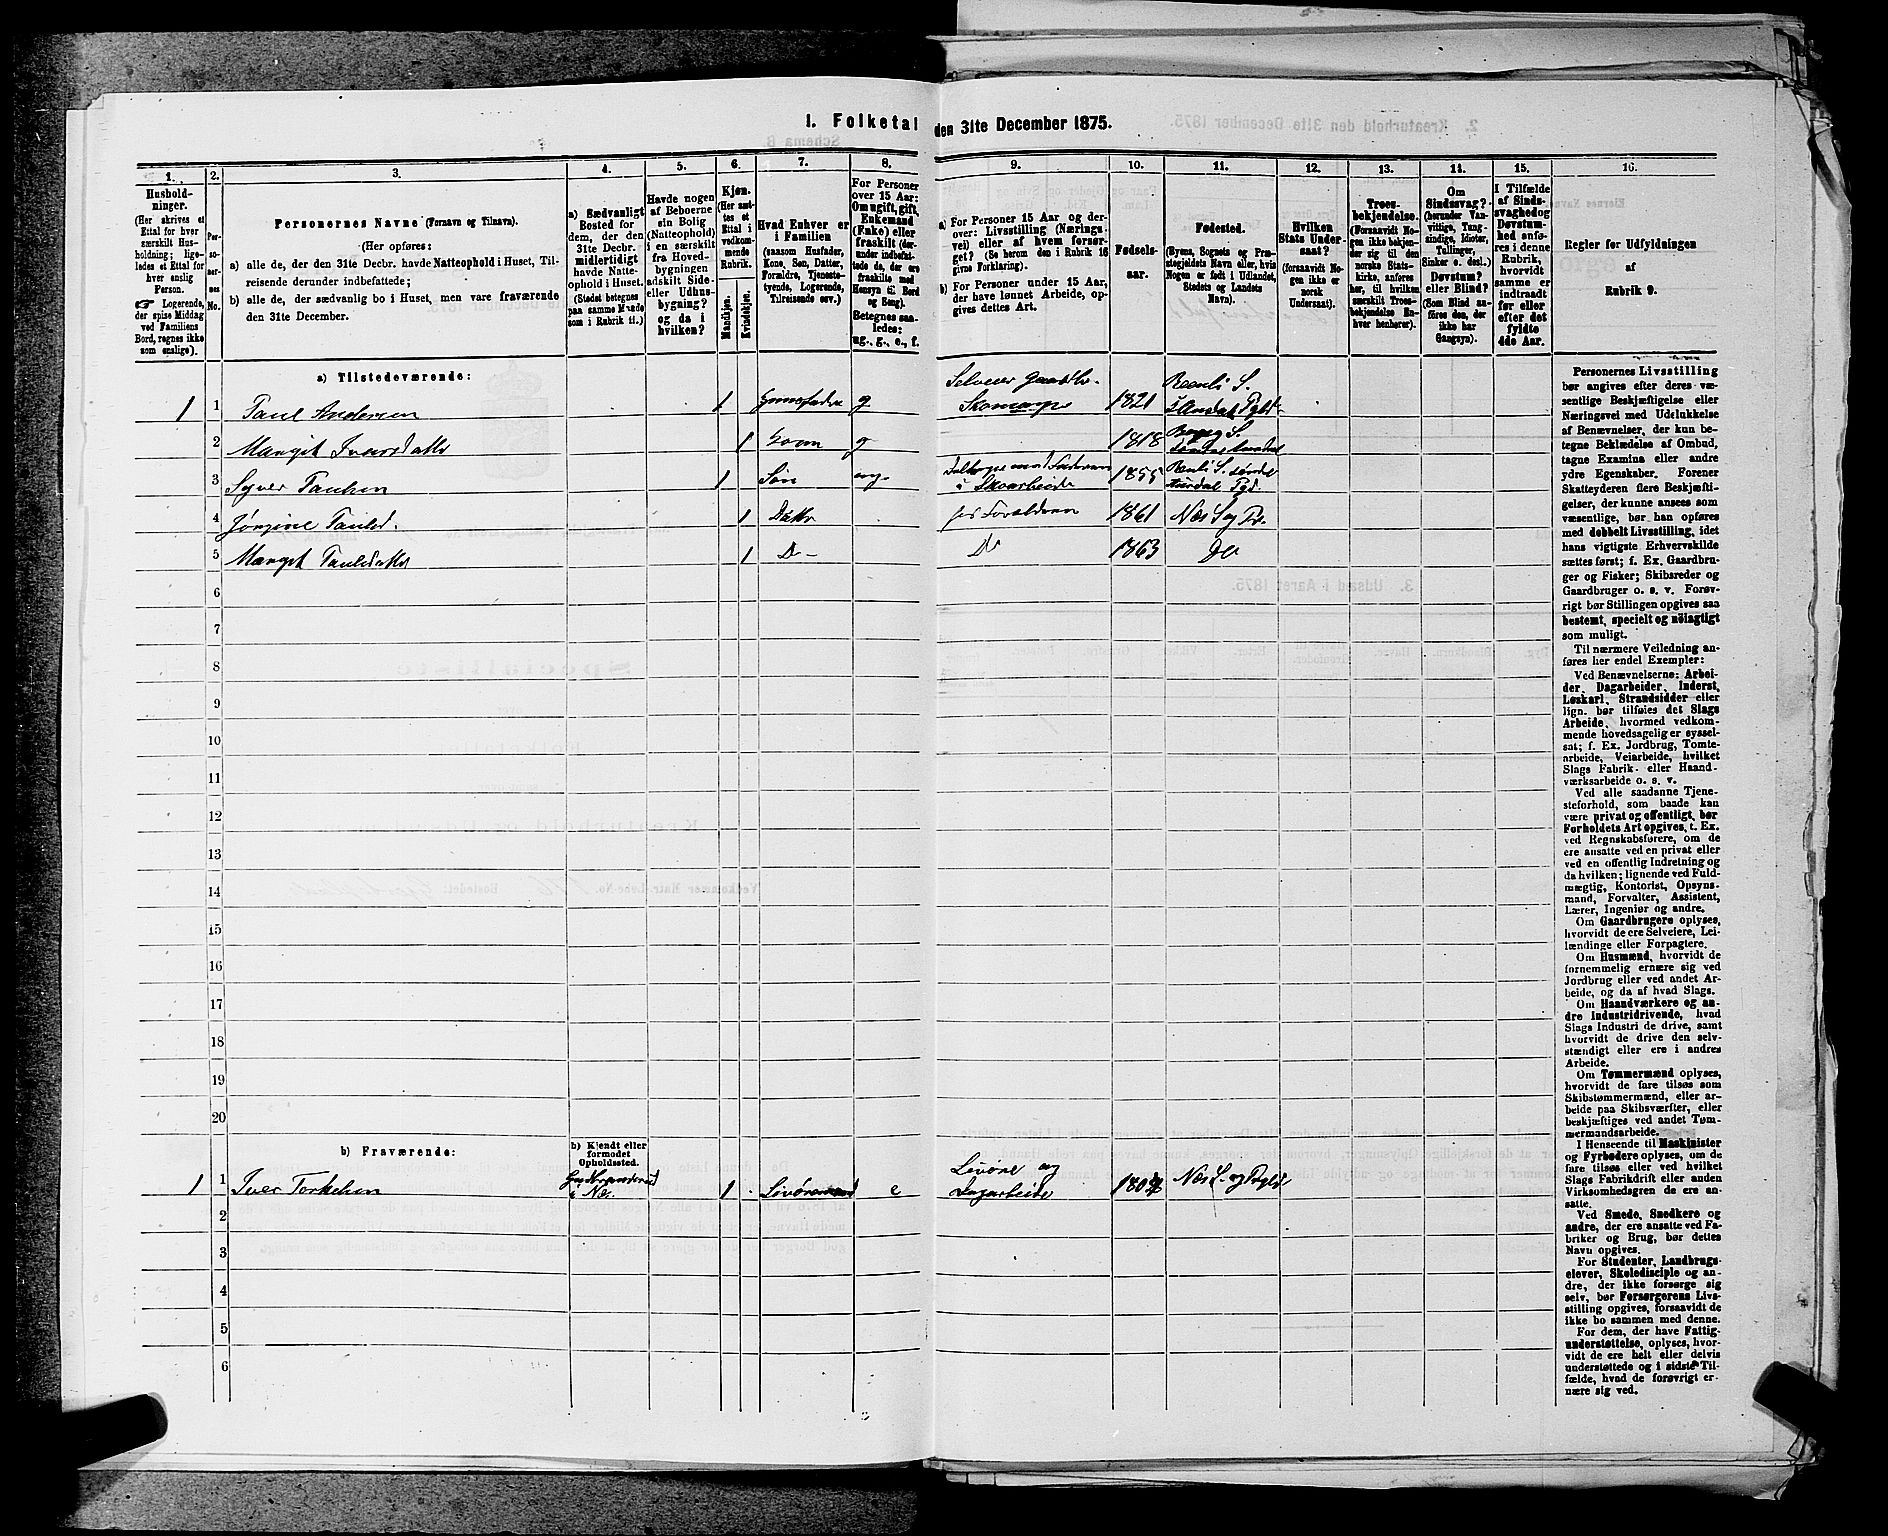 1. Folketal den 31te December 1875.
1. 2. 3. 4. 5. 6. 7. 8. 9. 10. 11. 12. 13. 14. 15. 16.
Hushold-
ninger.
(Her skrives et
Ettal for hver
særskilt Hus-
holdning; lige-
ledes et Ettal for
hver enslig
Person.
☞ Logerende,
der spise Middag
ved Familiens
Bord, regnes ikke
som enslige).
Per-
so-
ner-
nes
No.
Personernes Navne (Fornavn og Tilnavn).
(Her opføres:
a) alle de, der den 31te Decbr. havde Natteophold i Huset, Til-
reisende derunder indbefattede;
b) alle de, der sædvanlig bo i Huset, men vare fraværende
den 31te December.
a) Sædvanligt
Bosted for
dem, der den
31te Decbr.
midlertidigt
havde Natte-
ophold i Huset.
(Stedet betegnes
paa samme Maade
som i Rubrik 11.)
Havde nogen
af Beboerne
sin Bolig
(Natteophold)
i en særskilt
fra Hoved-
bygningen
adskilt Side-
eller Udhus-
bygning?
og da i
hvilken?
Kjøn.
(Her sæt-
tes et
Ettal i
vedkom-
mende
Rubrik.
Mandkjøn.
Kvindekjøn.
Hvad Enhver er
i Familien
(saasom Husfader,
Kone, Søn, Datter,
Forældre, Tjeneste-
tyende, Logerende,
Tilreisende osv.)
For Personer
over 15 Aar:
Om ugift, gift,
Enkemand
(Enke) eller
fraskilt (der-
under indbefat-
tede de, der ere
fraskilte med
Hensyn til Bord
og Seng).
Betegnes saa-
ledes:
ug., g., e., f.
a) For Personer 15 Aar og der-
over: Livsstilling (Nærings-
vei) eller af hvem forsør-
get? (Se herom den i Rubrik 16
givne Forklaring).
b) For Personer under 15 Aar,
der have lønnet Arbeide, op-
gives dettes Art.
Fødsels-
aar.
Fødested.
(Byens, Sognets og Præ-
stegjeldets Navn eller, hvis
Nogen er født i Udlandet,
Stedets og Landets
Navn).
Hvilken
Stats Under-
saat?
(forsaavidt No-
gen ikke er
norsk
Undersaat).
Troes-
bekjendelse.
(Forsaavidt No-
gen ikke bekjen-
der sig til den
norske Stats-
kirke, anføres
her, til hvilken
særskilt Troes-
bekjendelse En-
hver henhører).
Om
Sindssvag?
(herunder Van-
vittige, Tung-
sindige, Idioter,
Tullinger,
Sinker o. desl.).
Døvstum?
eller Blind?
(Som Blind an-
føres den, der
ikke har
Gangsyn).
I Tilfælde
af Sinds-
svaghed og
Døvstum-
hed anfø-
res i denne
Rubrik,
hvorvidt
samme er
indtraadt
før eller
efter det
fyldte
4de Aar.
Regler for Udfyldningen
af
Rubrik 9.
a) Tilstedeværende:
1 1 Paul Andersen 1 Huusfader g Selveier Gaardbr. Skomager 1821
2 Margit Iversdatter 1 Kone g 1818
3 Syver Paulsen 1 Søn ug. Skoarbeide 1855
4 Jørgine Paulsd. 1 Datter Forældrene 1861 Næs S og Pr.
5 Margit Paulsdatter 1 D- Do 1863 Do
6
7
8
9
10
11
12
13
14
15
16
17
18
19
20
b) Fraværende:
b) Kjendt eller
formodet
Opholdssted.
1 1 Iver Torkelsen i Næs. 1 e og Dagarbeide Næs S. og Pgld.
2
3
4
5
6
Personernes Livsstilling
bør angives efter deres væ-
sentlige Beskjæftigelse eller
Næringsvei med Udelukkelse
af Benævnelser, der kun be-
tegne Beklædelse af Ombud,
tagne Examina eller andre
ydre Egenskaber. Forener
Skatteyderen flere Beskjæfti-
gelser, der kunne ansees som
væsentlige, bør han opføres
med dobbelt Livsstilling, idet
hans vigtigste Erhvervskilde
sættes først; f. Ex. Gaardbru-
ger og Fisker; Skibsreder og
Gaardbruger o. s. v. Forøv-
rigt bør Stillingen opgives saa
bestemt, specielt og nöiagtigt
som muligt.
Til nærmere Veiledning an-
føres her endel Exempler:
Ved Benævnelserne: Arbei-
der, Dagarbeider, Inderst,
Løskarl, Strandsidder eller
lign. bør tilføies det Slags
Arbeide, hvormed vedkom-
mende hovedsagelig er syssel-
sat; f. Ex. Jordbrug, Tomte-
arbeide, Veiarbeide, hvilket
Slags Fabrik- eller Haand-
værksarbeide o. s. v.
Ved alle saadanne Tjene-
steforhold, som baade kan
være privat og offentligt, bør
Forholdets Art opgives, t. Ex.
ved Regnskabsførere, om de
ere ansatte ved en privat eller
ved en offentlig Indretning og
da hvilken; lignende ved Fuld-
mægtig, Kontorist, Opsyns-
mand, Forvalter, Assistent,
Lærer, Ingeniør og andre.
Om Gaardbrugere oplyses,
hvorvidt de ere Selveiere, Lei-
lændinge eller Forpagtere.
Om Husmænd, hvorvidt de
fornemmelig ernære sig ved
Jordbrug eller ved andet Ar-
beide, og da af hvad Slags.
Om Haandværkere og an-
dre Industridrivende, hvad
Slags Industri de drive, samt
hvorvidt de drive den selv-
stændigt eller ere i andres
Arbeide.
Om Tømmermænd oplyses,
hvorvidt de fare tilsøs som
Skibstømmermænd, eller ar-
beide paa Skibsværfter, eller
beskjæftiges ved andet Tøm-
mermandsarbeide.
I Henseende til Maskinister
og Fyrbødere oplyses, om de
fare tilsøs eller ved hvilket
Slags Fabrikdrift eller anden
Virksomhedsgren de ere an-
satte.
Ved Smede, Snedkere og
andre, der ere ansatte ved Fa-
briker og Brug, bør dettes
Navn opgives.
For Studenter, Landbrugs-
elever, Skoledisciple og an-
dre, der ikke forsørge sig
selv, bør Forsørgerens Livs-
stilling opgives, forsaavidt de
ikke bo sammen med denne.
For dem, der have Fattig-
understøttelse, oplyses, hvor-
vidt de ere helt eller delvis
understøttede og i sidste Til-
fælde, hvad de forøvrigt er-
nære sig ved.